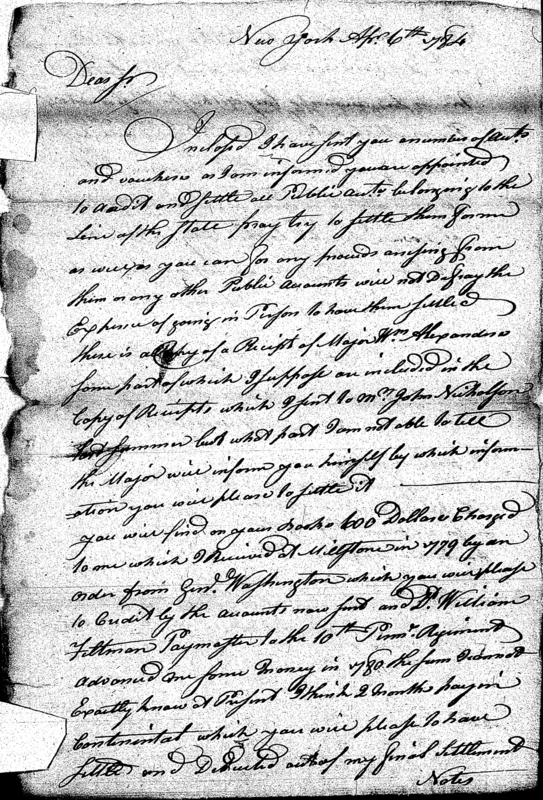 New York Apr. 6th 1784
Dear Sr
Inclos'd I have sent you a number of Acts.
and vouchers as I am inform'd you are appointed
to Audit and settle all Public Acts. belonging to the
Line of this State pray try to settle them for me
as well as you can for any proceeds arrising from
them or any other Public Accounts will not Defray the
Expence of going in Person to have them settled
there is a Copy of a Receipt of Major Wm. Alexanders
some part of which I suppose are included in the
Copy of Receipts which I sent to Mr. John Nicholson
last summer but what part I am not able to tell
the Major will inform you himself by which inform-
ation you will please to settle it
you will find on your Books 600 Dollars Charged
to me which I Received at Millstone in 1779 by an
order from Genl. Washington which you will please
to Credit by the accounts now sent and Dd. William
Feltman Paymaster to the 10th Penna. Regiment
advanced me some Money in 1780 the sum I cannot
Exactly know at Present I think 2 months pay in
Continental which you will please to have
settled and Deducted out of my final settlement
Notes